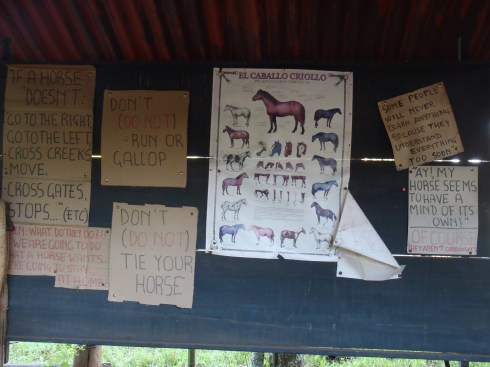 IF A HORSE
DOESN'T:
GO TO THE RIGHT
GO TO THE LEFT
CROSS CREEKS
MOVE.
CROSS GATES,
STOPS..." (ETC)
WHAT DO THEY DO?
WE ARE GOING TO DO
WHAT A HORSE WANTS
WE ARE GOING TO STAY
AT HOME
DON'T
(DO NOT)
- RUN OR
GALLOP
DON'T
(DO NOT)
TIE YOUR
HORSE
EL CABALLO CRIOLLO
SOME PEOPLE
WILL NEVER
LEARN ANYTHING
BECAUSE THEY
UNDERSTAND
EVERYTHING
TOO SOON"
"AY! MY
HORSE SEEMS
TO HAVE A
MIND OF ITS
OWN!"